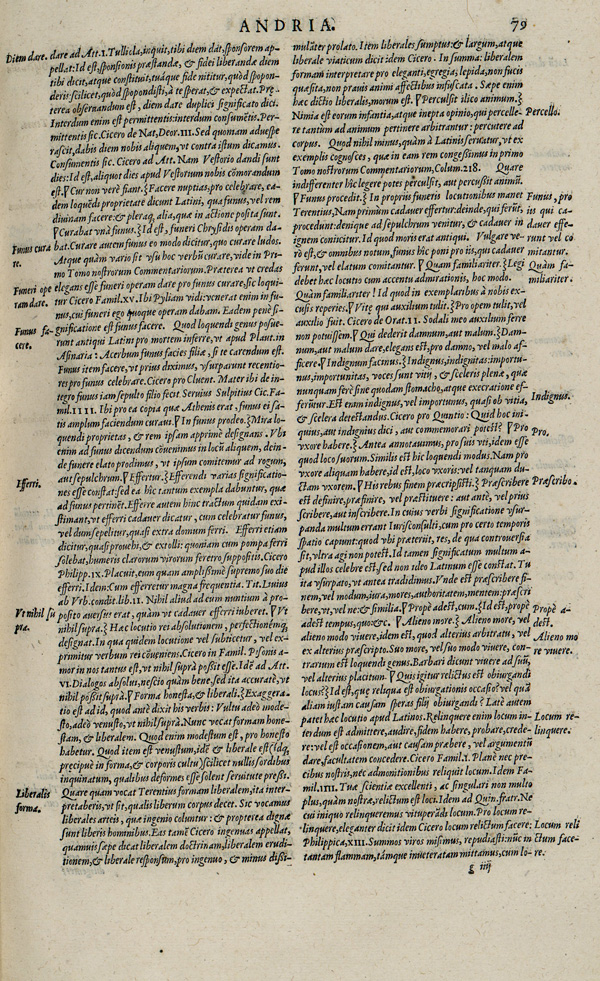 ANDRIA. 79
Diem dare.
dare ad Att.I. Tullicla, inquit, tibi diem dat, sponsorem ap-
pellat: Id est, sponsionis præstandæ, & fidei liberandæ diem
tibi dicit, atque constituit, tuáque fide nititur, quòd spopon-
deris: scilicet, quòd spopondisti, à te sperat, & expectat. Præ-
terea obseruandum est, diem dare duplici significato dici.
Interdum enim est permittentis: interdum consumẽtis. Per-
mittentis sic. Cicero de Nat. Deor.III. Sed quoniam aduespe
rascit, dabis diem nobis aliquem, vt contra istum dicamus.
Consumentis sic. Cicero ad Att. Nam Vestorio dandi sunt
dies: Id est, aliquot dies apud Vestorium nobis cõmorandum
est. ¶ Cur non verè fiant.} Facere nuptias, pro celebrare, ea-
dem loquẽdi proprietate dicunt Latini, qua funus, vel rem
diuinam facere: & pleraq; alia, quæ in actione posita sunt.
¶ Curabat vnà funus.} Id est, funeri Chrysidis operam da-
Funus cura
re.
bat. Curare autem funus eo modo dicitur, quo curare ludos.
Atque quàm vario sit vsu hoc verbũ curare, vide in Pri-
mo Tomo nostrorum Commentariorum. Præterea vt credas
Funeri ope
ram dare.
elegans esse funeri operam dare pro funus curare, sic loqui-
tur Cicero Famil.XV. ibi Pyliam vidi: venerat enim in fu-
nus, cui funeri ego quoque operam dabam. Eadem penè si-
Funus fa-
cere.
gnificatione est funus facere. Quod loquendi genus posue-
runt antiqui Latini pro mortem inferre, vt apud Plaut. in
Asinaria: Acerbum funus facies filiæ, si te carendum est.
Funus item facere, vt prius diximus, vsurparunt recentio-
res pro funus celebrare. Cicero pro Cluent. Mater ibi de in-
tegro funus iam sepulto filio fecit. Seruius Sulpitius Cic. Fa-
mil.IIII. Ibi pro ea copia quæ Athenis erat, funus ei sa-
tis amplum faciendum curaui. ¶ In funus prodeo.} Mira lo-
quendi proprietas, & rem ipsam apprimè designans. Vbi
enim ad funus dicendum cõuenimus in locũ aliquem, dein-
de funere elato prodimus, vt ipsum comitemur ad rogum,
Efferri.
aut sepulchrum. ¶ Effertur.} Efferendi varias significatio-
nes esse constat: sed ea hîc tantum exempla dabuntur, quæ
ad funus pertinẽt. Efferre autem hinc tractum quidam exi-
stimant, vt efferri cadauer dicatur, cum celebratur funus,
vel dum sepelitur, quasi extra domum ferri. Efferri etiam
dicitur, quasi prouehi, & extolli: quoniam cum pompa ferri
solebat, humeris clarorum virorum feretro suppositis. Cicero
Philipp.IX. Placuit, eum quàm amplissimè supremo suo die
efferri. Idem: Cum efferretur magna frequentia. Tit. Liuius
ab Vrb. condit. lib.II. Nihil aliud ad eum nuntium à pro-
Vt nihil su
pra.
posito auersus erat, quàm vt cadauer efferri iuberet. ¶ Vt
nihil supra.} Hac locutio rei absolutionem, perfectionẽmq;
designat. In qua quidem locutione vel subticetur, vel ex-
primitur verbum rei cõueniens. Cicero in Famil. Pisonis a-
mor in nos tantus est, vt nihil suprà possit esse. Idẽ ad Att.
VI. Dialogos absolui, nescio quàm bene, sed ita accuratè, vt
nihil possit suprà. ¶ Forma honesta, & liberali.} Exaggera-
tio est ad id, quod antè dixit his verbis: Vultu adeò mode-
sto, adeò venusto, vt nihil suprà. Nunc vocat formam hone-
stam, & liberalem. Quod enim modestum est, pro honesto
habetur. Quod item est venustum, idẽ & liberale est: idq;
præcipuè in forma, & corporis cultu: scilicet nullis sordibus
inquinatum, qualibus deformes esse solent seruitute pressi.
Liberalis
forma.
Quare quam vocat Terentius formam liberalem, ita inter-
pretaberis, vt sit, qualis liberum corpus decet. Sic vocamus
liberales arteis, quæ ingenio coluntur: & propterea dignæ
sunt liberis hominibus. Eas tamẽ Cicero ingenuas appellat,
quamuis sæpe dicat liberalem doctrinam, liberalem erudi-
tionem, & liberale responsum, pro ingenuo, & minus dissi-
mulãter prolato. Item liberales sumptus: & largum, atque
liberale viaticum dicit idem Cicero. In summa: liberalem
formam interpretare pro eleganti, egregia, lepida, non fucis
quæsita, non prauis animi affectibus infuscata. Sæpe enim
hæc dictio liberalis, morum est. ¶ Percussit ilico animum.}
Percello.
Nimia est eorum infantia, atque inepta opinio, qui percelle-
re tantum ad animum pertinere arbitrantur: percutere ad
corpus. Quod nihil minus, quàm à Latinis seruatur, vt ex
exemplis cognosces, quæ in eam rem congessimus in primo
Tomo nostrorum Commentariorum, Colum.218. Quare
indifferenter hîc legere potes perculsit, aut percussit animũ.
Funus, pro
iis qui ca-
dauer effe-
runt vel co
mitantur.
¶ Funus procedit.} In propriis funeris locutionibus manet
Terentius, Nam primùm cadauer effertur: deinde, qui ferũt,
procedunt: denique ad sepulchrum venitur, & cadauer in
ignem coniicitur. Id quod moris erat antiqui. Vulgare ve-
rò est, & omnibus notum, funus hîc poni pro iis, qui cadauer
Quàm fa-
miliariter.
ferunt, vel elatum comitantur. ¶ Quàm familiariter.} Legi
debet hæc locutio cum accentu admirationis, hoc modo.
Quàm familiariter! Id quod in exemplaribus à nobis ex-
cusis reperies. ¶ Vitæ qui auxilium tulit.} Pro opem tulit, vel
auxilio fuit. Cicero de Orat.II. Sodali meo auxilium ferre
non potuissem. ¶ Qui dederit damnum, aut malum.} Dam-
num, aut malum dare, elegans est, pro damno, vel malo af-
ficere. ¶ Indignum facinus.} Indignus, indignitas: importu-
nus, importunitas, voces sunt vitij, & sceleris plenæ, quæ
nunquam ferè sine quodam stomacho, atque execratione ef-
Indignus.
ferũtur. Est enim indignus, vel importunus, quasi ob vitia,
& scelera detestandus. Cicero pro Quintio: Quid hoc ini-
quius, aut indignius dici, aut commemorari potest? ¶ Pro
Pro.
vxore habere.} Antea annotauimus, pro suis vti, idem esse
quod loco suorum. Similis est hîc loquendi modus. Nam pro
vxore aliquam habere, id est, loco vxoris: vel tanquam du-
Præscribo.
ctam vxorem. ¶ His rebus finem præcripsisti.} Præscribere
est definire, præfinire, vel præstituere: aut antè, vel prius
scribere, aut inscribere. In cuius verbi significatione vsur-
panda multum errant Iurisconsulti, cum pro certo temporis
spatio capiunt: quod vbi præterit, res, de qua controuersia
sit, vltra agi non potest. Id tamen significatum multum a-
pud illos celebre est, sed non ideo Latinum esse constat. Tu
ita vsurpato, vt antea tradidimus. Vnde est præscribere fi-
nem, vel modum, iura, mores, authoritatem, mentem: præscri
bere, vt, vel ne: & similia. ¶ Propè adest, cum.} Id est, propè
Propè a-
dest.
adest tempus, quo &c. ¶ Alieno more.} Alieno more, vel
Alieno mo
re viuere.
alieno modo viuere, idem est, quod alterius arbitratu, vel
ex alterius præscripto. Suo more, vel suo modo viuere, con-
trarium est loquendi genus. Barbari dicunt viuere ad suũ,
vel alterius placitum. ¶ Quis igitur relictus est obiurgandi
locus?} Id est, quæ reliqua est obiurgationis occasio? vel quã
aliam iustam causam speras filij obiurgandi? Latè autem
Locum re-
linquere.
patet hæc locutio apud Latinos. Relinquere enim locum in-
terdum est admittere, audire, fidem habere, probare, crede-
re: vel est occasionem, aut causam præbere, vel argumentũ
dare, facultatem concedere. Cicero Famil.I. Planè nec pre-
cibus nostris, nec admonitionibus reliquit locum. Idem Fa-
mil.IIII. Tuæ scientiæ excellenti, ac singulari non multo
plus, quàm nostræ, relictũ est loci. Idem ad Quin. fratr. Ne
cui iniquo relinqueremus vituperãdi locum. Pro locum re-
Locum reli
ctum face-
re.
linquere, eleganter dicit idem Cicero locum relictum facere:
Philippica, XIII. Summos viros misimus, repudiasti: nũc in
tantam flammam, támque inueteratam mittamus, cum lo-
g iiij